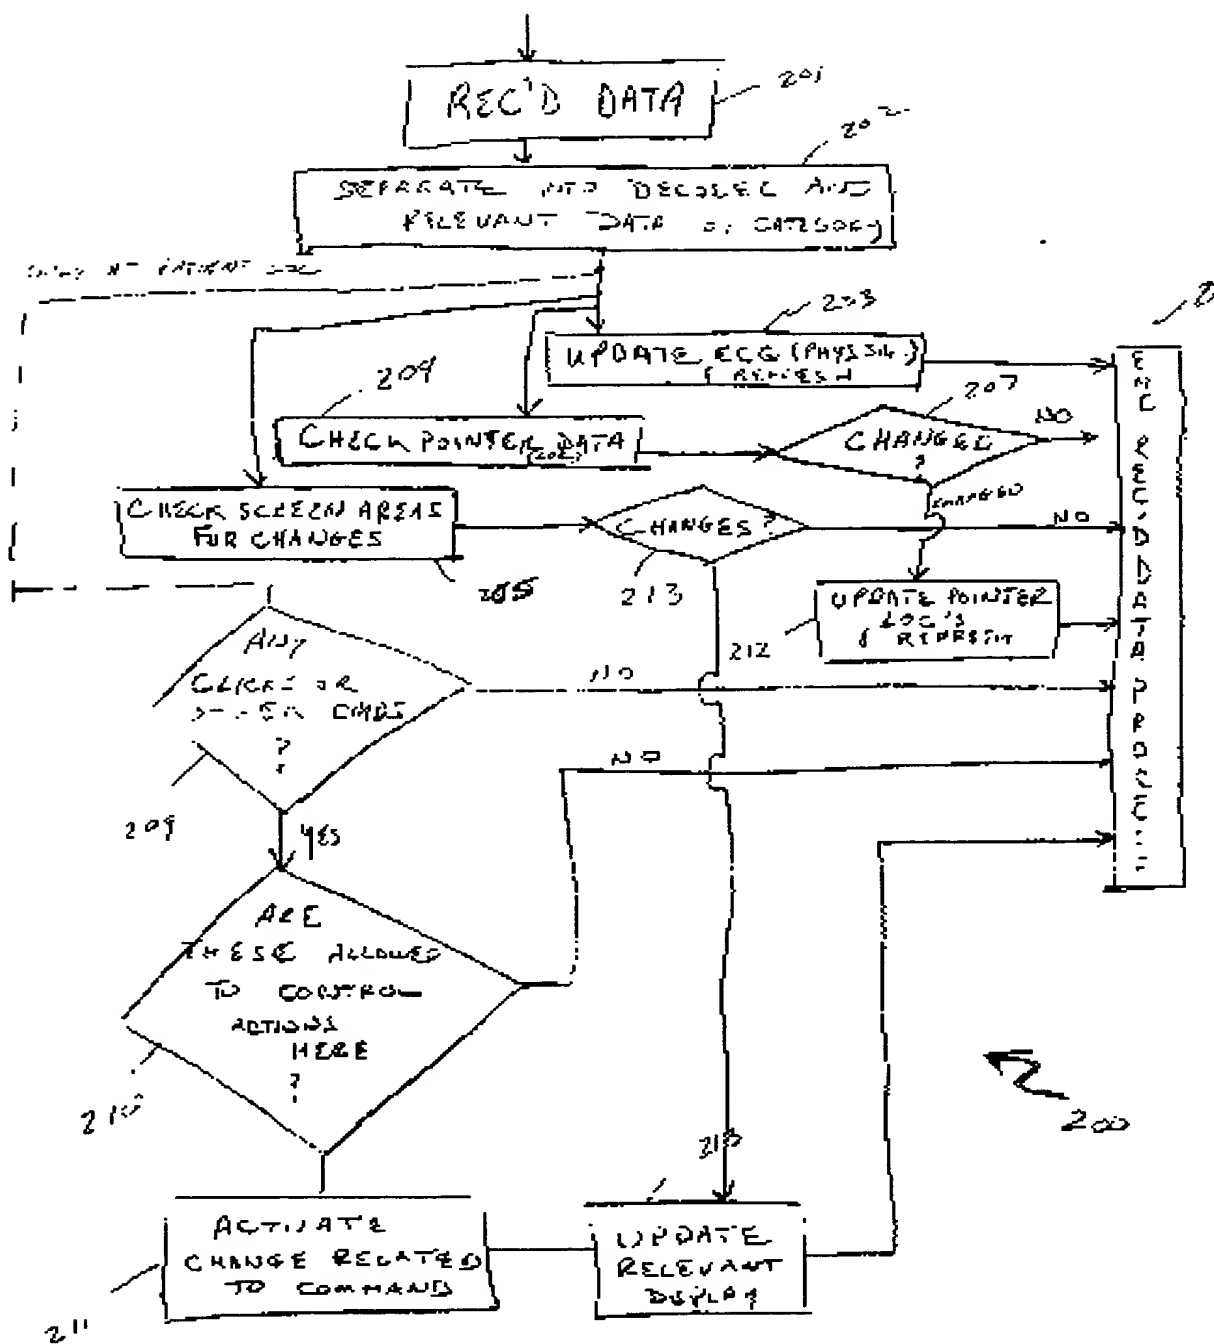 REC'D DATA
201
202
SEPARATE INTO DECODED AND
RELEVANT DATA BY CATEGORY
AT PATIENT LOC
203
UPDATE ECG (PHYS SIG.)
& REFRESH
204
CHECK POINTER DATA
(LOC.)
207
CHANGED
?
NO
CHANGED
CHECK SCREEN AREAS
FOR CHANGES
205
CHANGES?
NO
213
UPDATE POINTER
LOC'S
& REFRESH
212
ANY
CLICKS OR
OTHER CMDS
?
NO
209
YES
NO
ARE
THESE ALLOWED
TO CONTROL
ACTIONS
HERE
?
210
200
213
ACTIVATE
CHANGE RELATED
TO COMMAND
211
UPDATE
RELEVANT
DISPLAY
END REC'D DATA